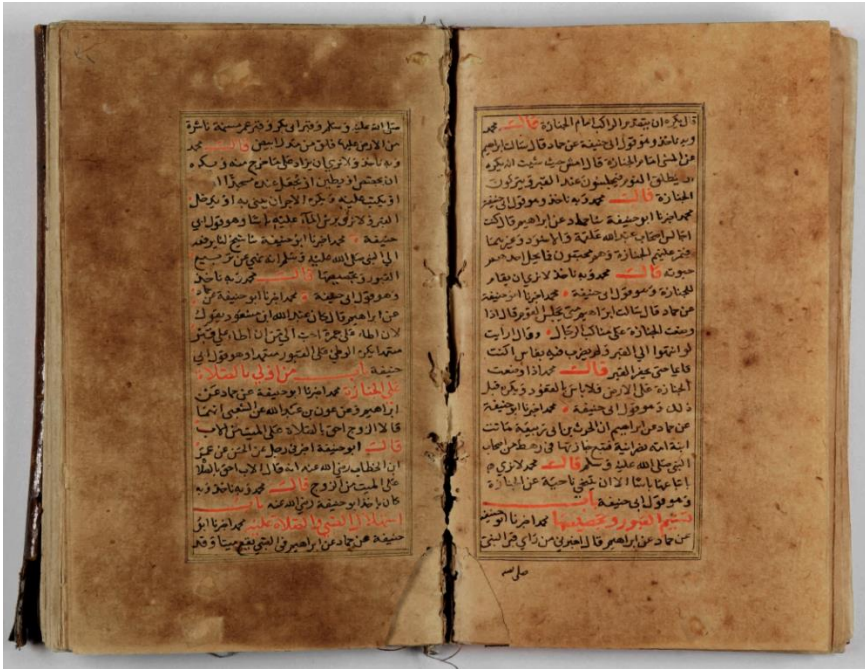 ل يكره ان يتقدم الراكب امام الجنازة قال محمد
وبه ناخذ وهو قول ابي حنيفة عن حماد قال سالت ابراهيم
عن المشي امام الجنازة قال امش حيث شئت انما يكره
ان ينطلق القوم فيجلسون عند القبر ويتركون
الجنازة قال محمد وبه ناخذ وهو قول ابي حنيفة
محمد اخبرنا ابو حنيفة ثنا حماد عن ابراهيم قال كنت
اجالس اصحاب عبد الله علقمة والاسود وغيرهما
فتمر عليهم الجنازة وهم محتبون فما يحل احد منهم
حبوته قال محمد وبه ناخذ لا نرى ان يقام
للجنازة وهو قول ابي حنيفة محمد اخبرنا ابو حنيفة
عن حماد قال سالت ابراهيم متى يجلس القوم قال اذا
وضعت الجنازة على مناكب الرجال وقال ارايت
لو انتهوا الى القبر ولم يضرب فيه بفاس اكنت
قائما حتى يحفر القبر قال محمد اذا وضعت
الجنازة على الارض فلا باس بالقعود ويكره قبل
ذلك وهو قول ابي حنيفة محمد اخبرنا ابو حنيفة
عن حماد عن ابراهيم ان الحرث بن ابي ربيعة ماتت
ابنة امه نصرانية فتبع جنازتها في رهط من اصحاب
النبي صلى الله عليه وسلم قال محمد لا نرى
باتباعها باسا الا ان يتنحى ناحية عن الجنازة
وهو قول ابي حنيفة باب
تسنيم القبور وتجصيصها محمد اخبرنا ابو حنيفة
عن حماد عن ابراهيم قال اخبرني من راى قبر النبي
صلى الله
صلى الله عليه وسلم وقبر ابي بكر وقبر عمر مسنمة ناشزة
من الارض عليها فلق من مدر ابيض قال محمد
وبه ناخذ ولا نرى ان يزاد على ما خرج منه ويكره
ان يجصص او يطين او يجعل عنده مسجدا
او يكتب عليه ويكره الاجر ان يبنى به او يدخل
القبر ولا نرى برش الماء عليه باسا وهو قول ابي
حنيفة محمد اخبرنا ابو حنيفة ثنا شيخ لنا يرفعه
الى النبي صلى الله عليه وسلم انه نهى عن تربيع
القبور وتجصيصها قال محمد وبه ناخذ
وهو قول ابي حنيفة محمد اخبرنا ابو حنيفة عن حماد
عن ابراهيم قال كان عبد الله ابن مسعود يقول
لان اطا على جمرة احب الي من ان اطا على قبر
متعمدا يكره الوطي على القبور متعمدا وهو قول ابي
حنيفة باب من اولى بالصلاة
على الجنازة محمد اخبرنا ابو حنيفة عن حماد عن
ابراهيم وعن عون بن عبد الله عن الشعبي انهما
قالا الزوج احق بالصلاة على الميت من الاب
قال ابو حنيفة اخبرني رجل عن الحسن عن عمر
ابن الخطاب رضي الله عنه انه قال الاب احق بالصلاة
على الميت من الزوج قال محمد وبه ناخذ وبه
كان ياخذ ابو حنيفة رضي الله عنه باب
استهلال الصبي والصلاة عليه محمد اخبرنا ابو
حنيفة عن حماد عن ابراهيم في الصبي يقع ميتا وقد